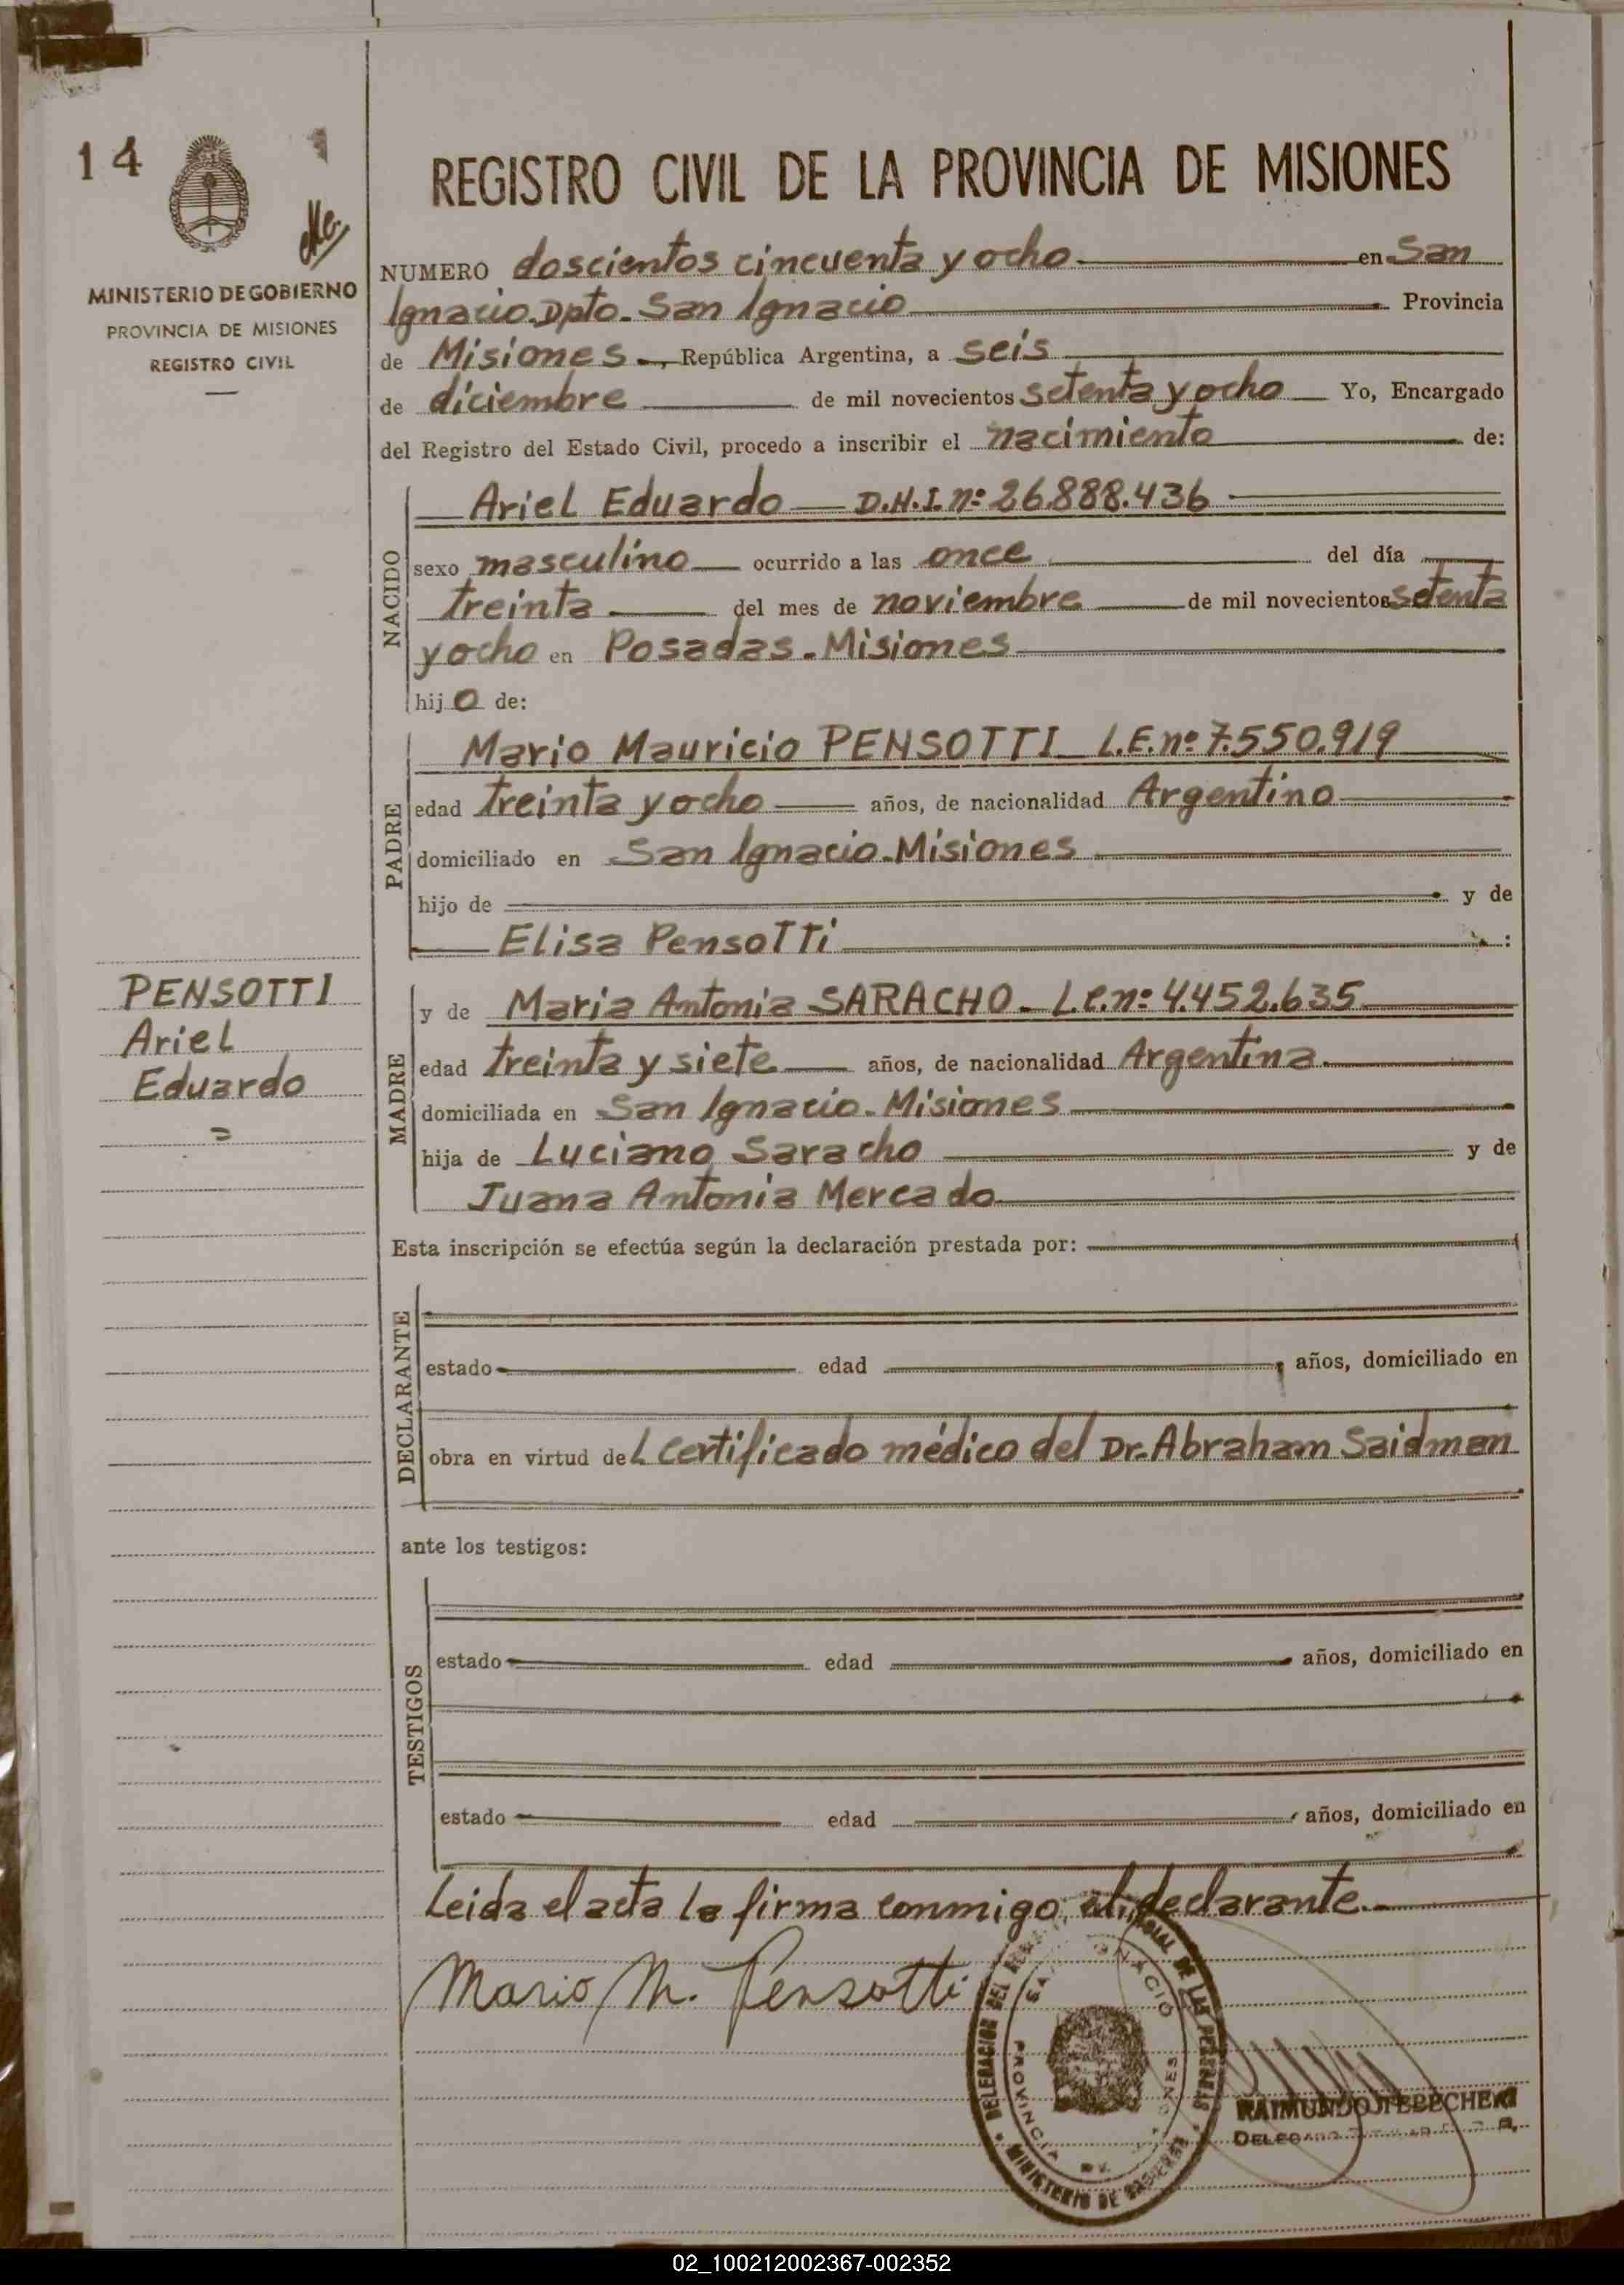 14
MINISTERIO DE GOBIERNO
PROVINCIA DE MISIONES
REGISTRO CIVIL
REGISTRO CIVIL DE LA PROVINCIA DE MISIONES
NUMERO doscientos cincuenta y ocho en San
Ignacio Dpto. San Ignacio Provincia
de Misiones, República Argentina, a seis
de diciembre de mil novecientos setenta y ocho Yo, Encargado
del Registro del Estado Civil, procedo a inscribir el nacimiento de:
NACIDO
Ariel Eduardo D.N.I. nº 26.888.436
sexo masculino ocurrido a las once del día
treinta del mes de noviembre de mil novecientos setenta
y ocho en Posadas. Misiones
hijo de:
PADRE
Mario Mauricio PENSOTTI L.E. nº 7.550.919
edad treinta y ocho años, de nacionalidad Argentino
domiciliado en San Ignacio. Misiones
hijo de y de
Elisa Pensotti
PENSOTTI
Ariel
Eduardo
MADRE
y de Maria Antonia SARACHO. L.C. nº 4.452.635
edad treinta y siete años, de nacionalidad Argentina.
domiciliada en San Ignacio. Misiones
hija de Luciano Saracho y de
Juana Antonia Mercado
Esta inscripción se efectúa según la declaración prestada por:
DECLARANTE
estado edad años, domiciliado en
obra en virtud del certificado médico del Dr. Abraham Saidman
ante los testigos:
TESTIGOS
estado edad años, domiciliado en
estado edad años, domiciliado en
Leida el acta la firma conmigo el declarante.
Mario M. Pensotti
DELEGACION DEL DE LAS PERSONAS
MINISTERIO DE GOBIERNO
PROVINCIA
RAIMUNDO
02_100212002367-002352